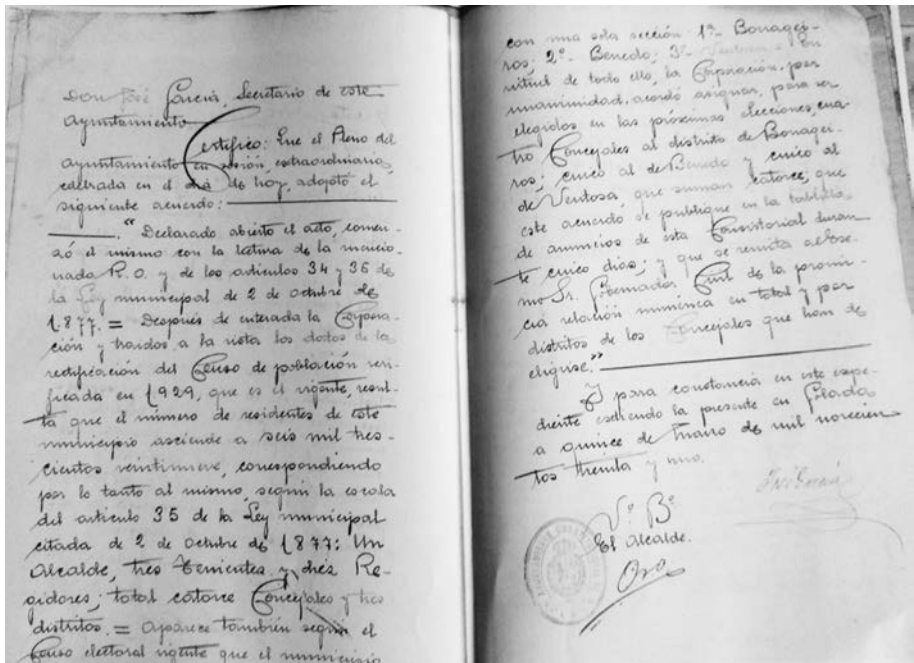 Don José García, Secretario de este
Ayuntamiento
Certifico: Que el Pleno del
ayuntamiento en sesión extraordinaria,
celebrada en el día de hoy, adoptó el
siguiente acuerdo:
"Declarado abierto el acto, comen-
zó el mismo con la lectura de la mencio-
nada R. O. y de los artículos 34 y 36 de
la Ley municipal de 2 de octubre de
1.877. = Después de enterada la Corpora-
ción y traidos a la vista los datos de la
rectificación del Censo de población veri-
ficada en 1929, que es el vigente, resul-
ta que el número de residentes de este
municipio asciende a seis mil tres-
cientos veintinueve, correspondiendo
por lo tanto al mismo, según la escala
del artículo 35 de la Ley municipal
citada de 2 de octubre de 1877: Un
Alcalde, tres Tenientes y diez Re-
gidores; total catorce Concejales y tres
distritos. = Aparece también según el
Censo electoral vigente que el municipio
con una sola sección: 1º Bonagei-
ros; 2º Benedo; 3º Ventosa. En
virtud de todo ello, la Corporación, por
unanimidad, acordó asignar, para ser
elegidos en las próximas elecciones, cua-
tro Concejales al distrito de Bonagei-
ros; cinco al de Benedo y cinco al
de Ventosa, que suman catorce; que
este acuerdo se publique en la tablilla
de anuncios de esta Consistorial duran-
te cinco días; y que se remita al Exce-
mo Sr. Gobernador Civil de la provin-
cia relación numérica en total y por
distritos de los Concejales que han de
elegirse."
Y para constancia en este expe-
diente extiendo la presente en Golada
a quince de Marzo de mil novecien
tos treinta y uno.
José García
Vº Bº
El Alcalde.